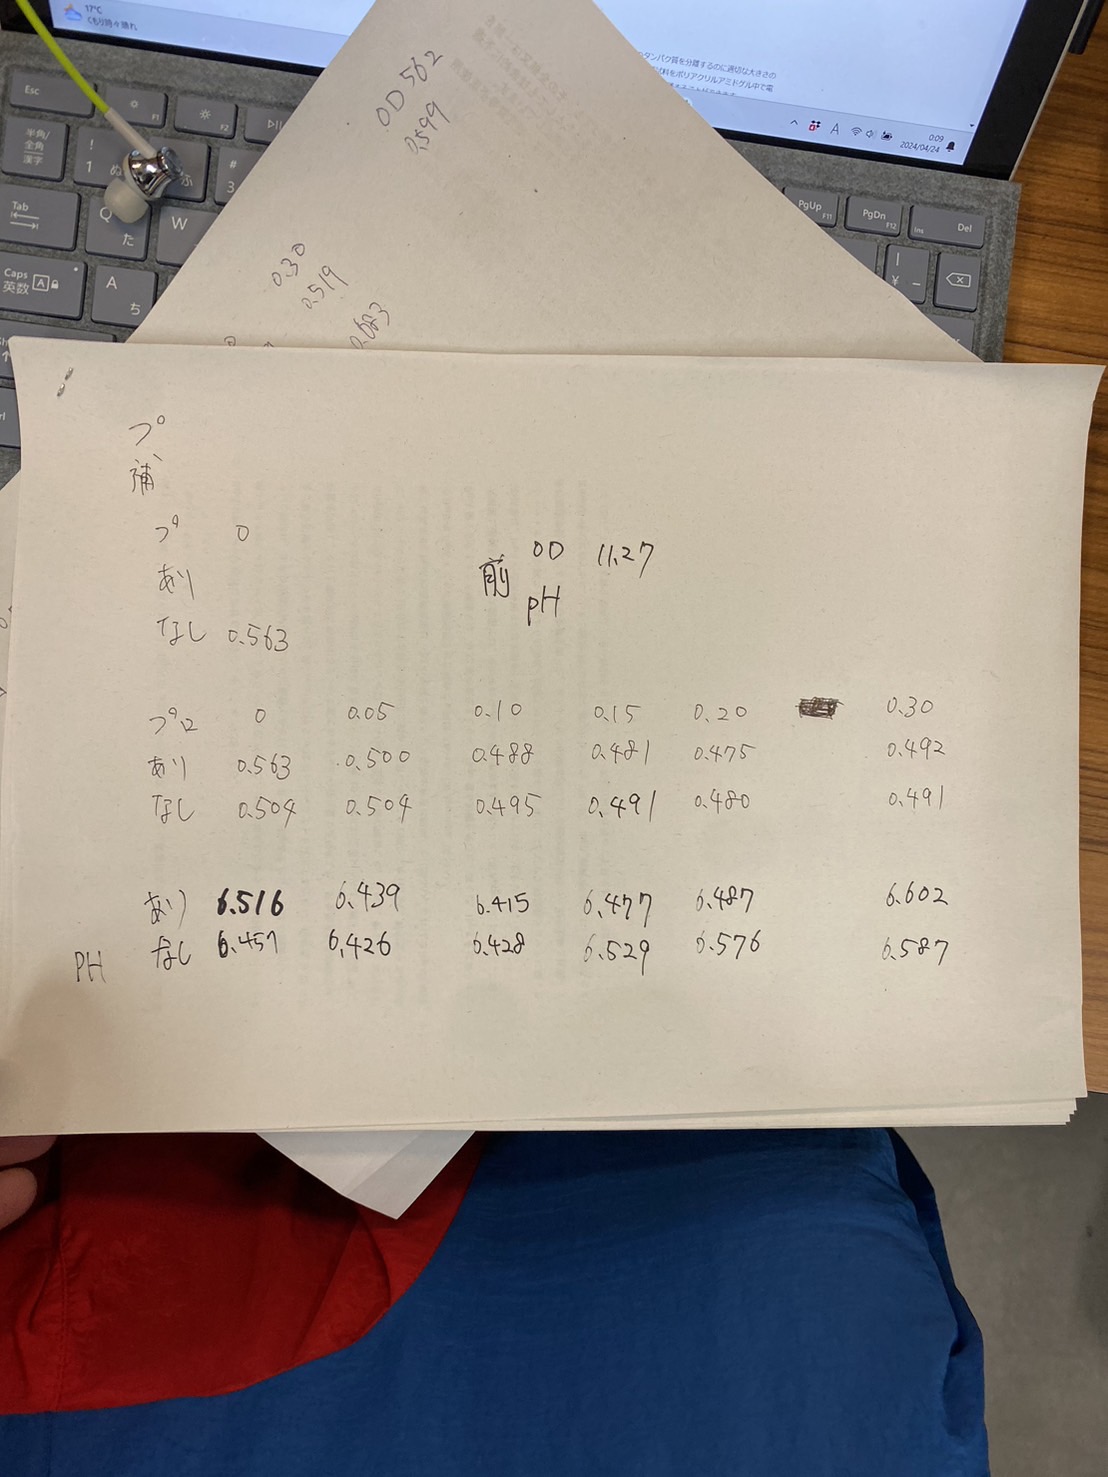 17°C
くもり時々晴れ
のタンパク質を分離するのに適切な大きさの
試料をポリアクリルアミドゲル中で電
0:09
2024/04/24
Esc
F1
F2
半角/
全角
漢字
!
1 ぬ
ふ
#
3
Tab
Q
た
W
Caps
英数
A
ち
PgUp
F11
PgDn
F12
Ins
Del
OD 562
0.599
0.30
0.519
0.683
プ
補
プ 0
あり
なし 0.563
前 OD 11.27
pH
プロ 0 0.05 0.10 0.15 0.20 0.30
あり 0.563 0.500 0.488 0.481 0.475 0.492
なし 0.504 0.504 0.495 0.491 0.480 0.491
あり 6.516 6.439 6.415 6.477 6.487 6.602
PH なし 6.457 6.426 6.428 6.529 6.576 6.587